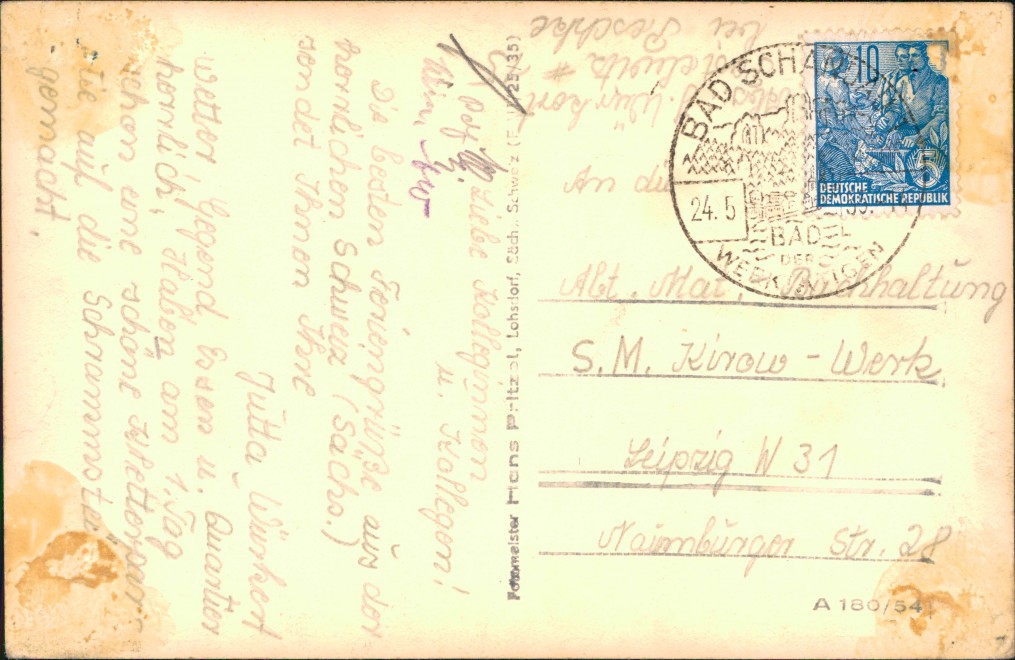 Liebe Kolleginnen
u. Kollegen!
Die besten Feriengrüße aus der
herrlichen Schweiz (Sächs.)
sendet Ihnen Ihre
Jutta Würkert
Wetter, Gegend, Essen u. Quartier
herrlich, Haben am 1. Tag
schon eine schöne Kletterei
die auf die Schrammst.
gemacht.
Hans Pritzel, Lohsdorf, Sächs. Schweiz
25/35)
J. Würkert
bei Peschke
BAD SCHAN
24.5
BAD
DER
WERKTÄTIGEN
10
5
DEUTSCHE
DEMOKRATISCHE REPUBLIK
An die
Abt. Mat. Buchhaltung
S.M. Kirow-Werk
Leipzig W 31
Naumburger Str. 28
A 180/54